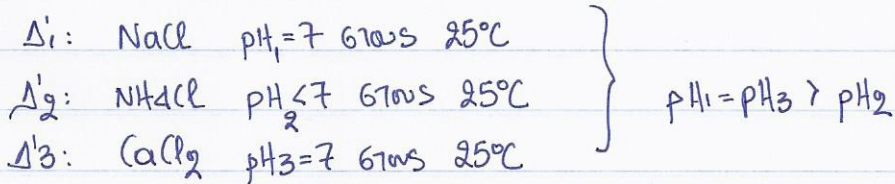 Δ'1: NaCl pH₁=7 στους 25°C
Δ'2: NH4Cl pH₂<7 στους 25°C
Δ'3: CaCl2 pH3=7 στους 25°C
pH1=pH3 > pH2